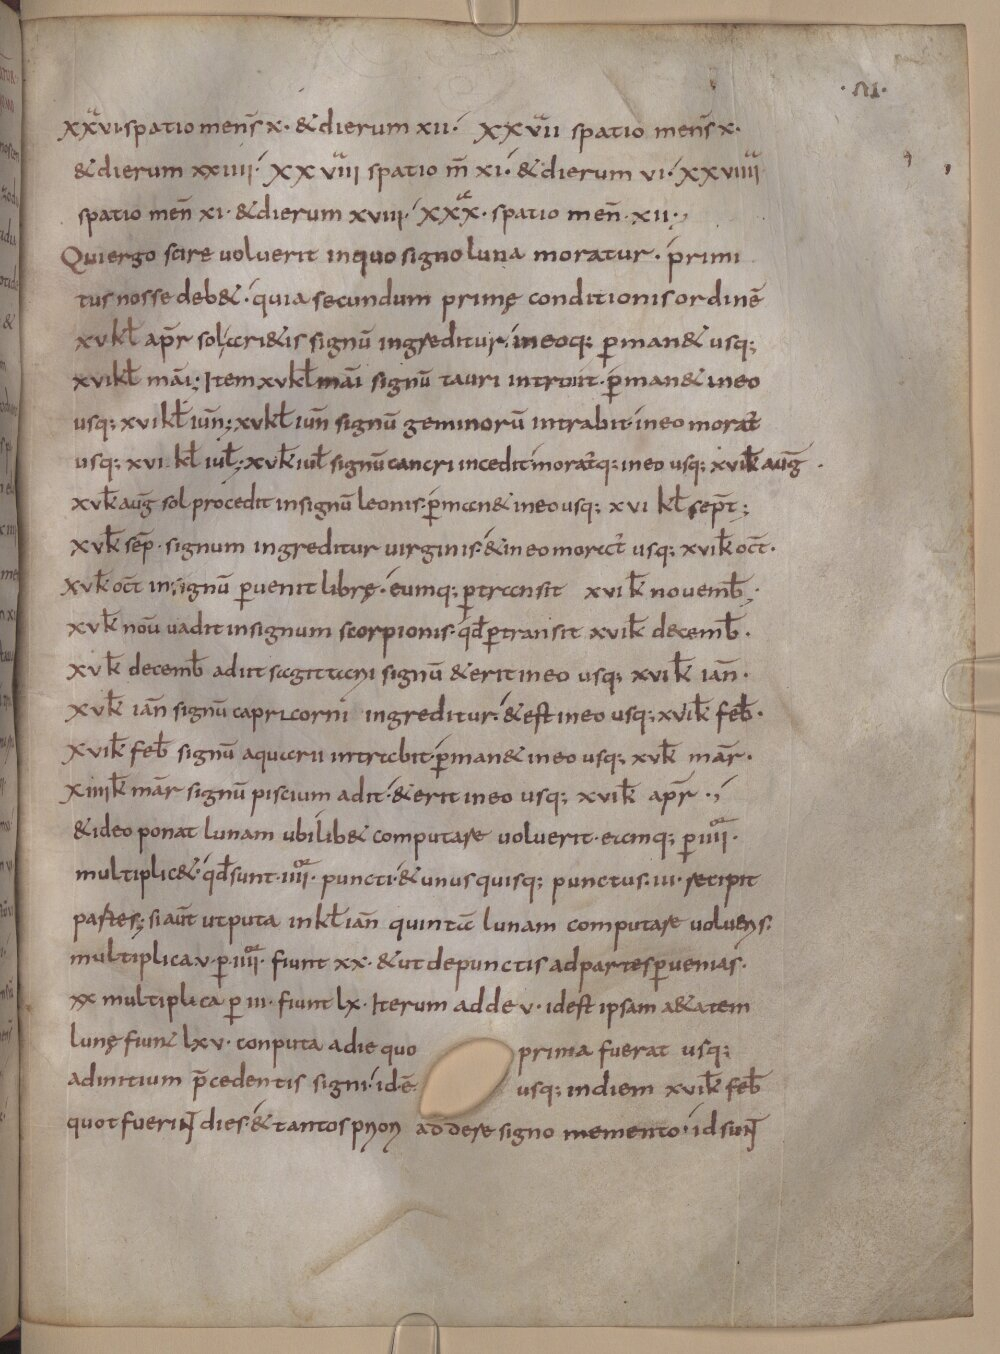 ·VI·
xxᵗⁱvi· spatio menš x· &dierum xii· XXᵗⁱvii spatio menš x·
&dierum xxiiii· XXᵗⁱviii spatio m̄ xi· &dierum vi· XXviiiiᵗⁱ
spatio meñ xi· &dierum xviii· XXXᵗᵉ· spatio meñ· xii·,
Quiergo scire voluerit inquo signo luna moratur· primi
tus nosse deb&· quia secundum primę conditionis ordinē
xvkł ap̄r sol, ari&is signū ingreditur· ineoq; p̄man& usq;
xvikł māi; Item xvkł māi signū tauri introiit· p̄man& ineo
usq; xvikł iuñ; xvkł iuñ signū geminorū intrabit· ineo morat̄
usq; xvi kł iuł; xvk̄ iuł signū cancri incedit morat̄q; ineo usq; xvik̄ auḡ·
xvk̄ auḡ sol procedit insignū leonis· p̄man& ineo usq; xvi kł sep̄t;
xvk̄ sep̄· signum ingreditur virginis· &ineo morat̄ usq; xvik̄ oc̄t·
xvk̄ oc̄t insignū p̄uenit librę· eumq; p̄transit xvik̄ nouemb̄;·
xvk̄ noū uadit insignum scorpionis· qd̄ p̄transit xvik̄ decemb̄·
xvk̄ decemb̄ adiit sagittarii signū &erit ineo usq; xvik̄ iañ·
xvk̄ iañ signū capricorni ingreditur· &est ineo usq; xvik̄ feb̄·
xvik̄ feb̄ signū aquarii intrabit· p̄man& ineo usq; xvk̄ mār·
xiiiik̄ mār signū piscium adit· &erit ineo usq; xvik̄ ap̄r·,
&ideo ponat lunam ubi lib& computare uoluerit· eamq; p̄ iiiiᵒʳ·
multiplic&· qd̄ sunt· iiiiᵒʳ· puncti· &unusquisq; punctus· iii· recipit
partes; si aūt utputa inkł iañ quinta lunam computare uolueris·
multiplica v· p̄ iiiiᵒʳ· fiunt xx· &ut depunctis adpartes p̄uenias·
xx multiplica p̄ iii· fiunt lx· Iterum adde v· idest ipsam a&atem
lunę fiunt lxv· conputa adie quo prima fuerat usq;
adinitium p̄cedentis signi· id ē· usq; indiem xvik̄ feb̄
quot fuerint dies· &tantos addere signo memento· id sunt